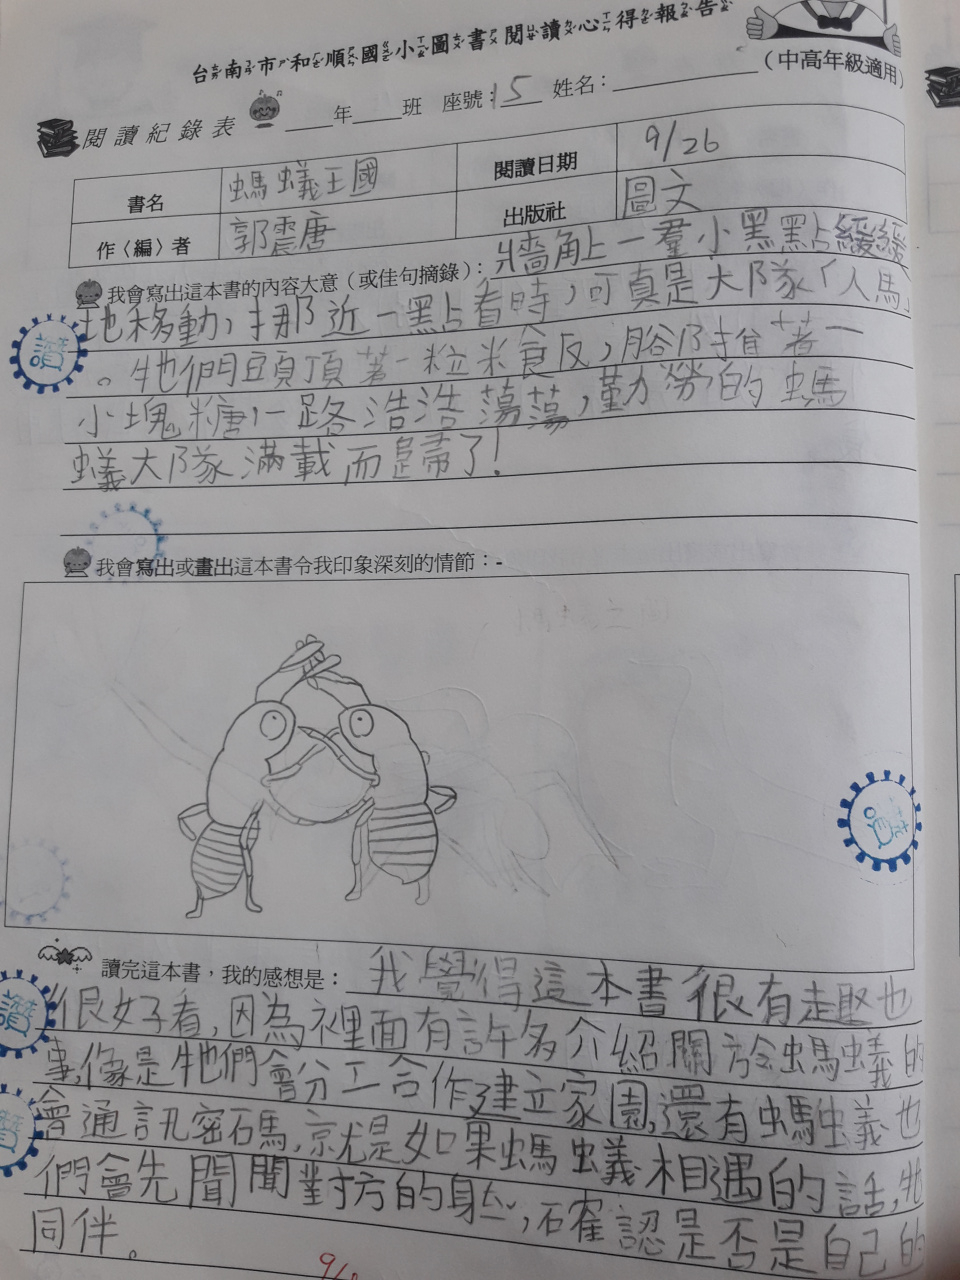 台南市和順國小圖書閱讀心得報告
(中高年級適用)
閱讀紀錄表 ____年____班 座號:15 姓名:________
書名 螞蟻王國 閱讀日期 9/26
作〈編〉者 郭震唐 出版社 圖文
我會寫出這本書的內容大意(或佳句摘錄): 牆角上一羣小黑點緩緩
地移動,挪近一點看時,可真是大隊「人馬」
。牠們頭頂著一粒米飯,胳肘著一
小塊糖,一路浩浩蕩蕩,勤勞的螞
蟻大隊滿載而歸了!
讚
我會寫出或畫出這本書令我印象深刻的情節:-
讚
讀完這本書,我的感想是: 我覺得這本書很有趣也
很好看,因為裡面有許多介紹關於螞蟻的
事,像是牠們會分工合作建立家園,還有螞蟻也
會通訊密碼,就是如果螞蟻相遇的話,牠
們會先聞聞對方的身上,確認是否是自己的
同伴。
讚
讚